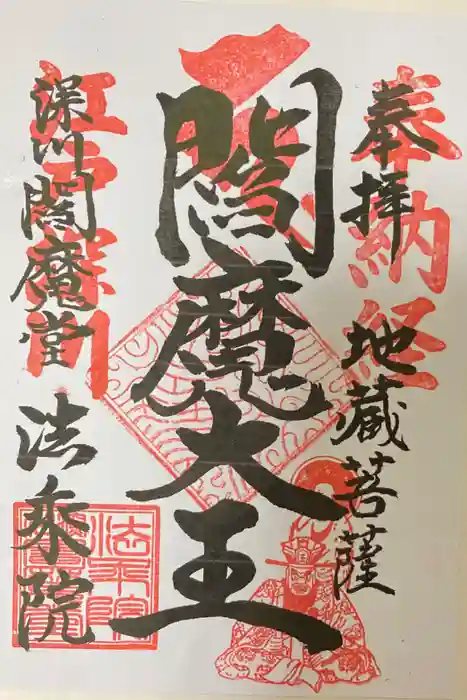 奉納経
奉拝
地蔵菩薩
閻魔大王
江戸深川
深川閻魔堂
法乗院
法乗院